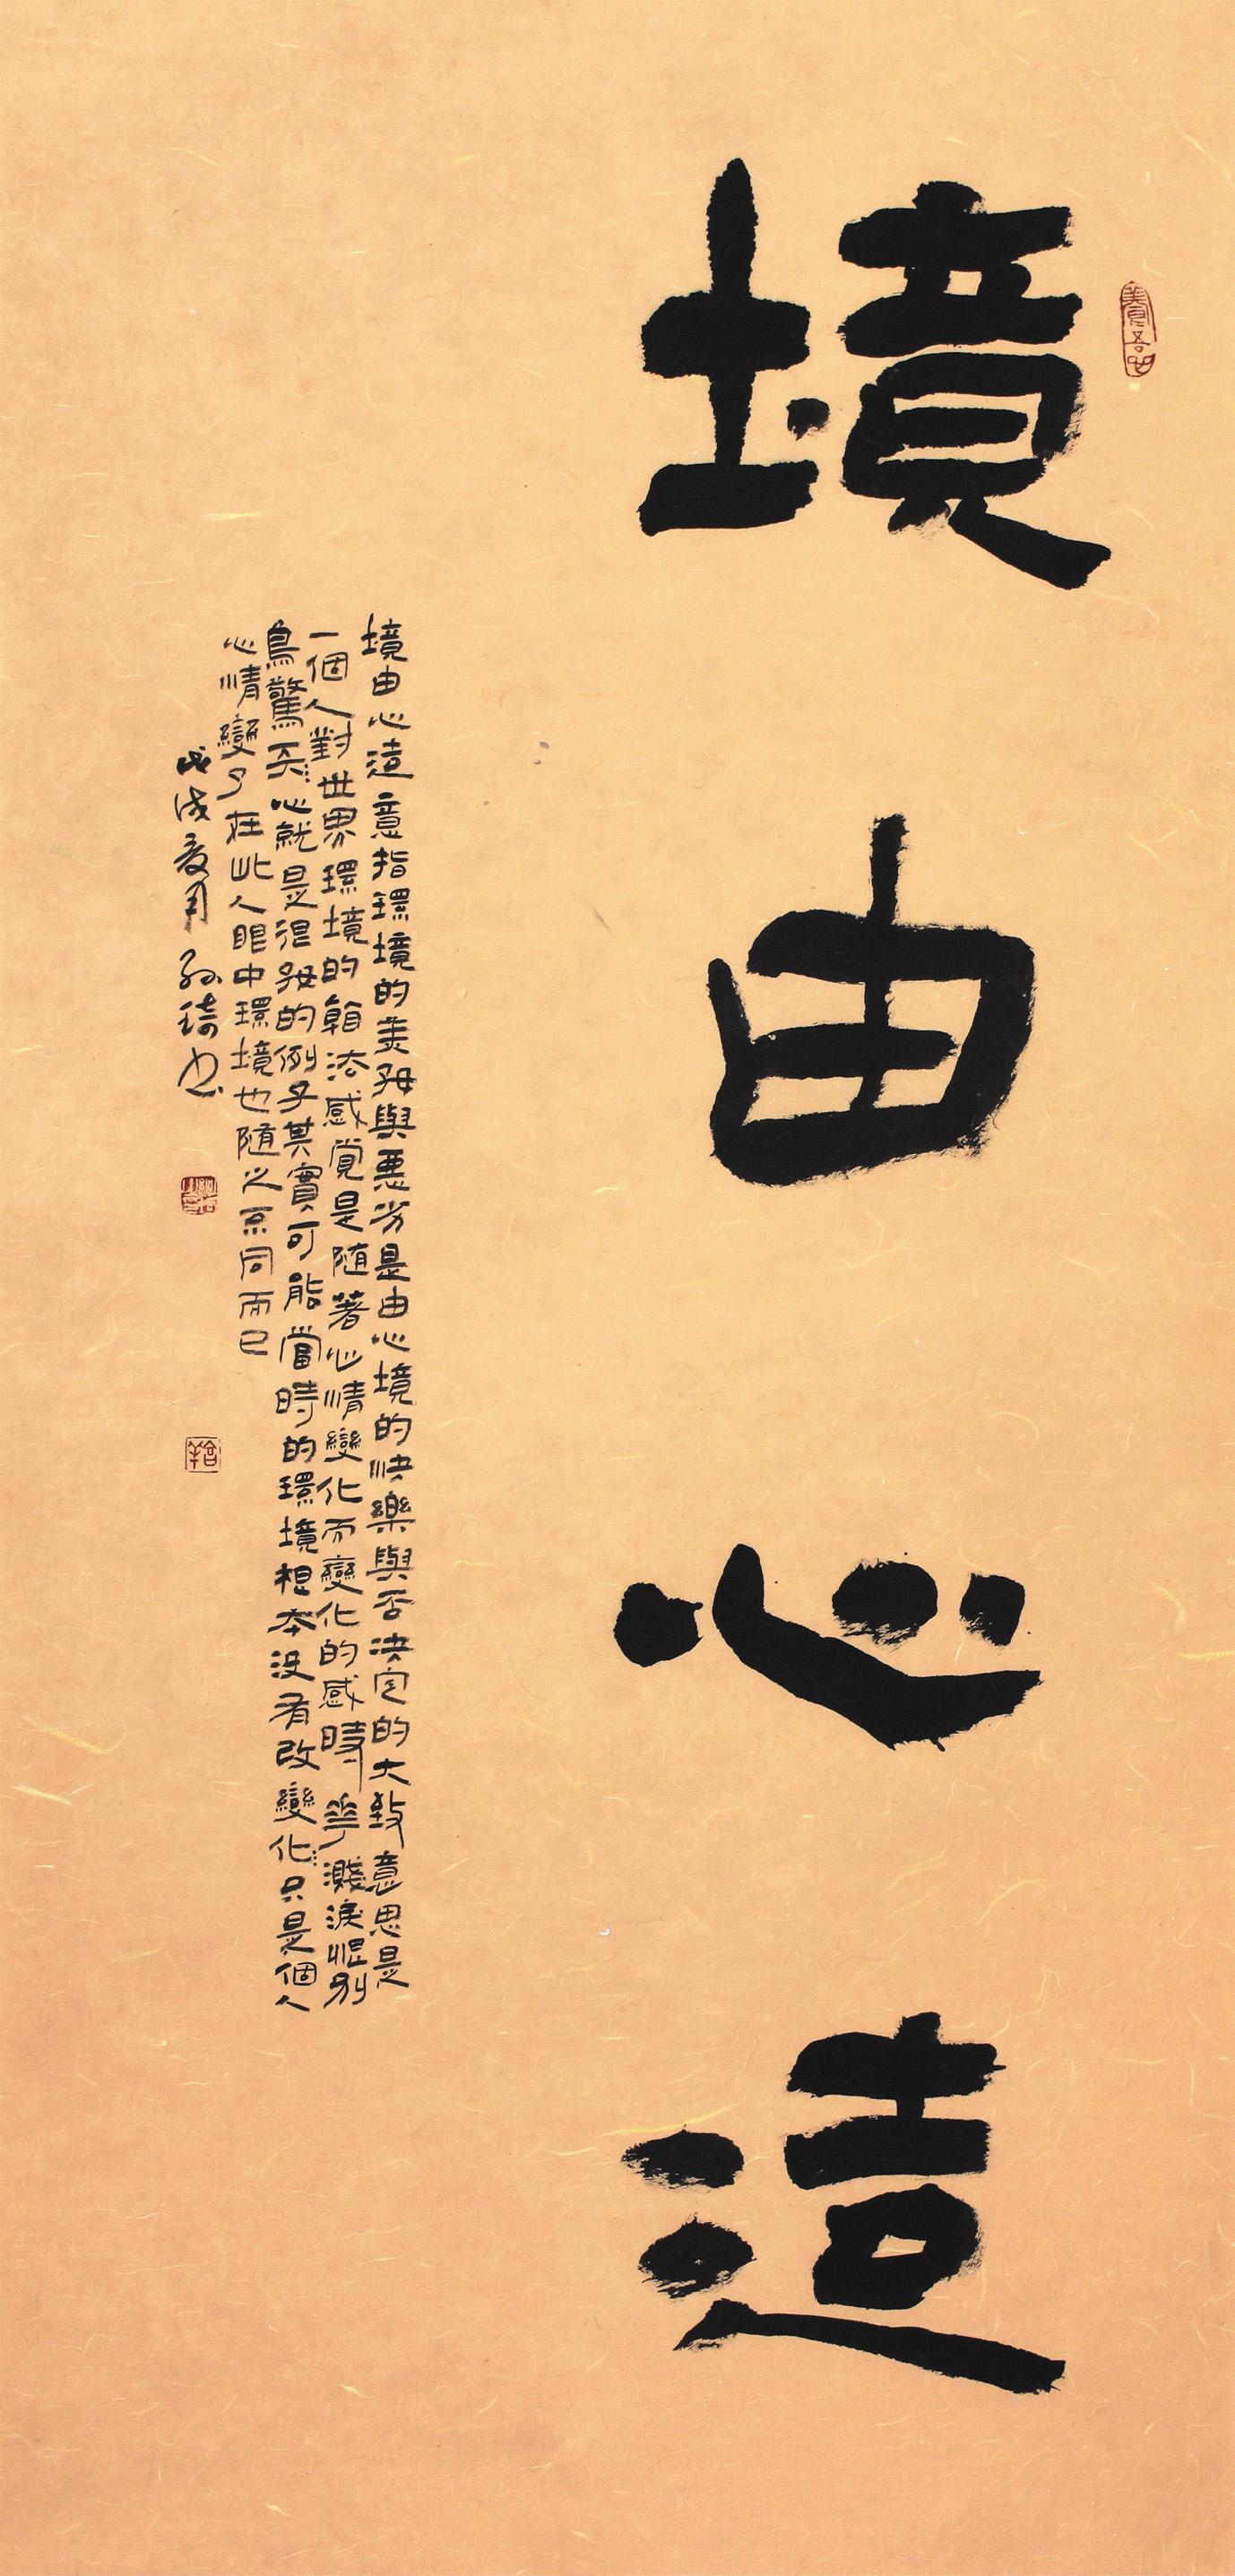 境由心造
境由心造意指環境的美好與惡劣是由心境的快樂與否決定的大致意思是
一個人對世界環境的看法感覺是隨著心情變化而變化的感時花濺淚恨別
鳥驚心就是很好的例子其實可能當時的環境根本沒有改變化只是個人
心情變了在此人眼中環境也隨之不同而已
戊戌夏月孫琦書